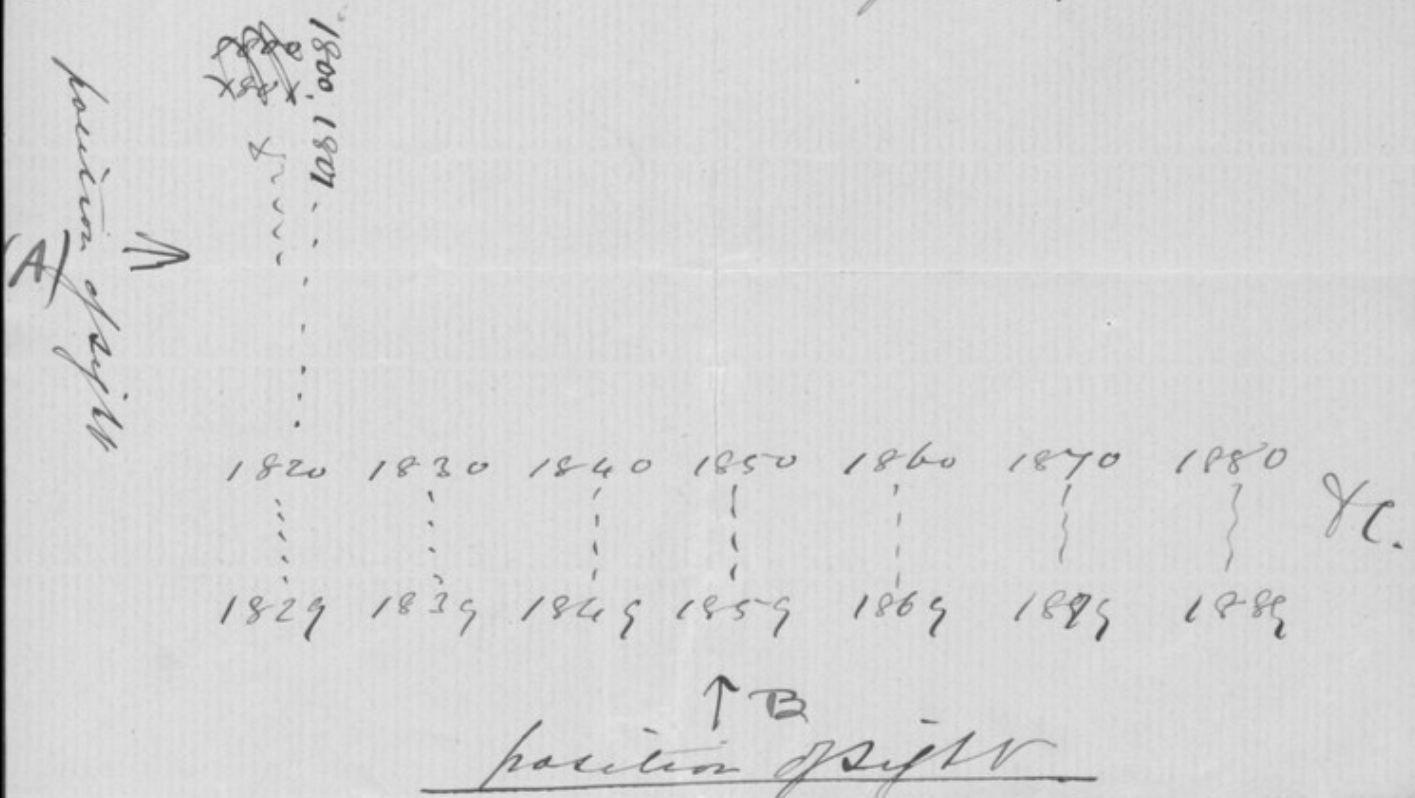 1800. 1801
position of sight
(A)
1820 1830 1840 1850 1860 1870 1880 &c.
1829 1839 1849 1859 1869 1879 1889
↑ B
position of sight